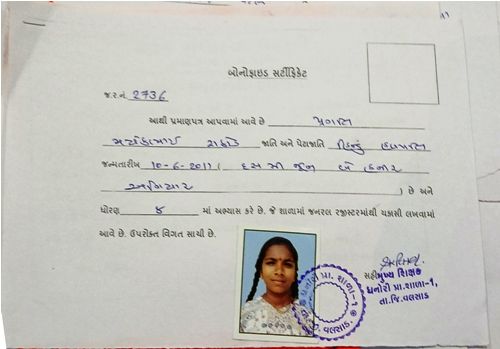 બોનોફાઇડ સર્ટીફિકેટ
જ.ર.નં. 2736
આથી પ્રમાણપત્ર આપવામાં આવે છે પ્રગતિ
જાતિ અને પેટાજાતિ હિન્દુ હળપતિ
જન્મતારીખ 10-6-2011 ( દસમી જૂન બે હજાર
અગિયાર ) છે અને
ધોરણ ૪ માં અભ્યાસ કરે છે. જે શાળામાં જનરલ રજીસ્ટરમાંથી ચકાસી લખવામાં
આવે છે. ઉપરોક્ત વિગત સાચી છે.
સહી મુખ્ય શિક્ષક
ધનોરી પ્રા.શાળા-૧,
તા.જિ.વલસાડ
ધનોરી પ્રા. શાળા-૧
વલસાડ